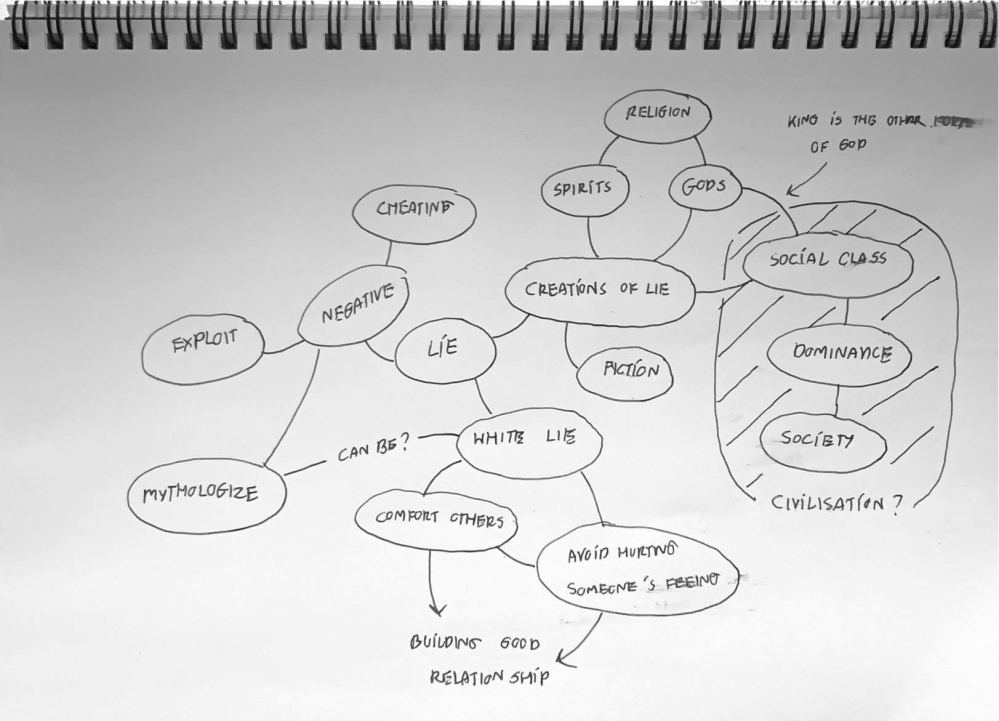 RELIGION
KING IS THE OTHER
OF GOD
SPIRITS
GODS
CHEATING
SOCIAL CLASS
CREATIONS OF LIE
NEGATIVE
EXPLOIT
LIE
DOMINANCE
FICTION
WHITE LIE
SOCIETY
CAN BE?
MYTHOLOGIZE
CIVILISATION?
COMFORT OTHERS
AVOID HURTING
SOMEONE'S FEEING
BUILDING GOOD
RELATION SHIP